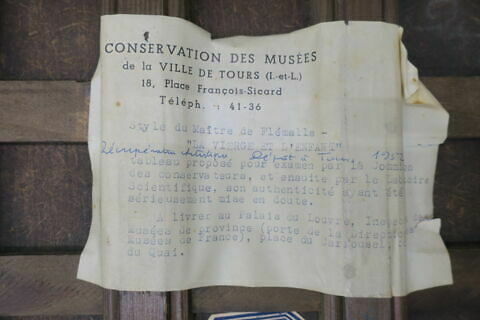 CONSERVATION DES MUSÉES
de la VILLE DE TOURS (I.-et-L.)
18, Place François-Sicard
Téléph. : 41-36
Style du Maître de Flémalle -
"LA VIERGE ET L'ENFANT"
Récupération Artistique Dépôt à Tours 1952
tableau proposé pour examen par la Commis
des conservateurs, et ensuite par le Laboire
Scientifique, son authenticité ayant été
sérieusement mise en doute.
A livrer au Palais du Louvre, Inspec des
Musées de province (porte de la Direction
Musées de France), place du Carrousel,
du Quai.